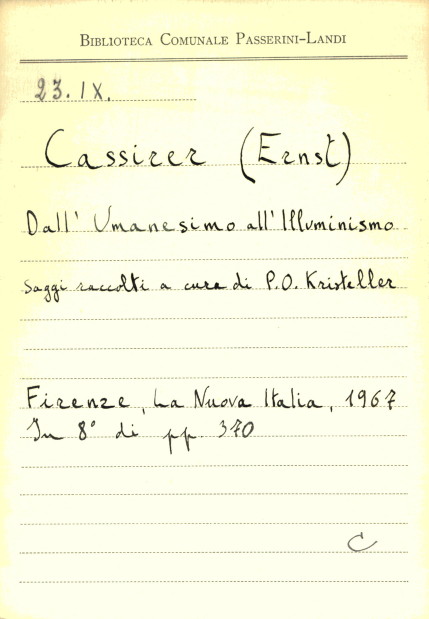 BIBLIOTECA COMUNALE PASSERINI-LANDI
23.IX.
Cassirer (Ernst)
Dall' Umanesimo all'Illuminismo
saggi raccolti a cura di P.O. Kristeller
Firenze, La Nuova Italia, 1967
In 8° di pp. 370
C